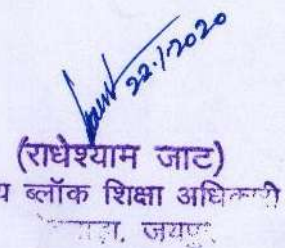 22.1.2020
(राधेश्याम जाट)
य ब्लॉक शिक्षा अधिकारी
जयपुर